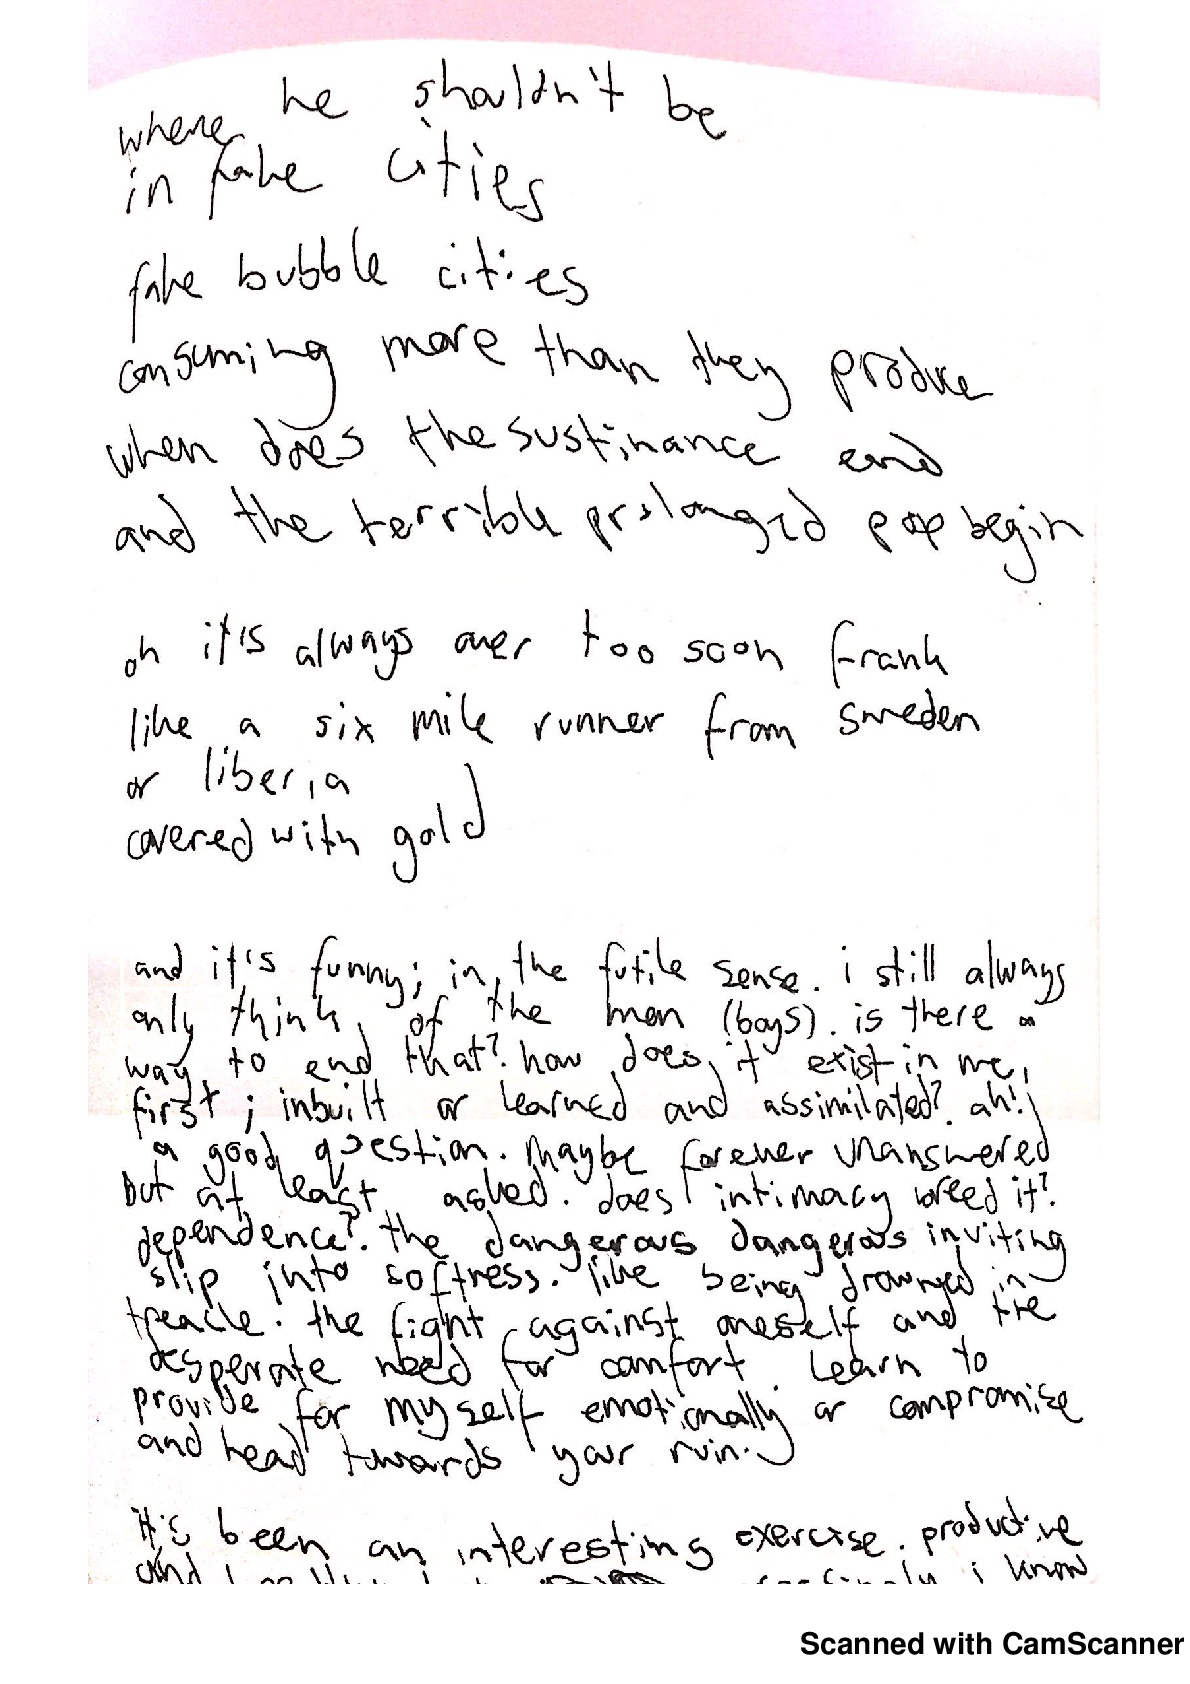 where he shouldn't be
in fake cities
fake bubble cities
consuming more than they produce
when does the sustinance end
and the terrible prolonged pop begin
oh it's always over too soon frank
like a six mile runner from sweden
or liberia
covered with gold
and it's funny; in the futile sense. i still always
only think of the men (boys). is there a
way to end that? how does it exist in me,
first; inbuilt or learned and assimilated? ah!
a good question. maybe forever unanswered
but at least asked. does intimacy breed it?
dependence?. the dangerous dangerous inviting
slip into softness. like being drowned in
treacle. the fight against oneself and the
desperate need for comfort. learn to
provide for myself emotionally or compromise
and head towards your ruin.
it's been an interesting exercise. productive
and i know
Scanned with CamScanner